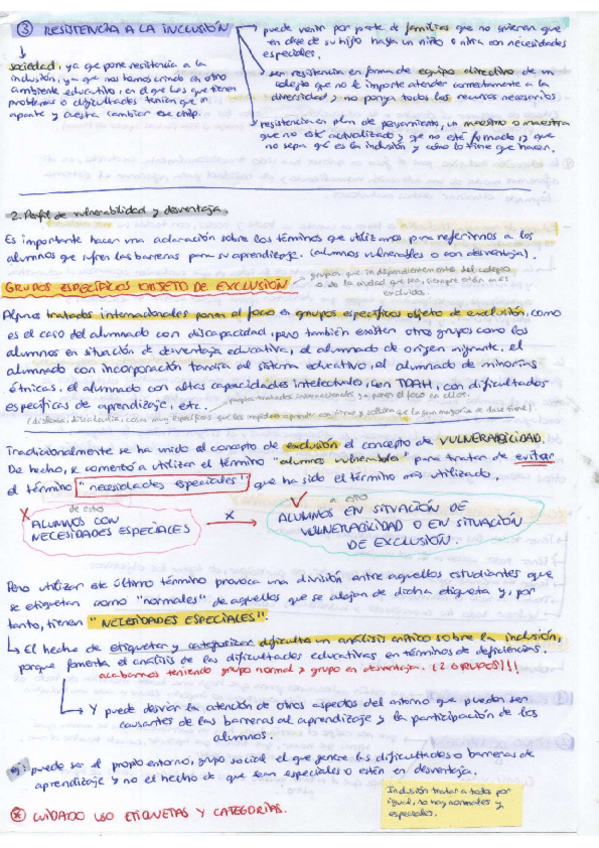 ③ RESISTENCIA A LA INCLUSIÓN
sociedad, ya que pone resistencia a la
inclusión, ya que nos hemos criado en otro
ambiente educativo, en el que los que tienen
problemas o dificultades tenían que ir
aparte y cuesta cambiar ese chip.
puede venir por parte de familias que no quieren que
en clase de su hijo haya un niño o niña con necesidades
especiales.
ser resistencia en forma de equipo directivo de un
colegio que no le importe atender correctamente a la
diversidad y no ponga todos los recursos necesarios
resistencia en plan de pensamiento, un maestro o maestra
que no esté actualizado y que no esté formado, y que
no sepa qué es la inclusión y cómo lo tiene que hacer.
2. Perfil de vulnerabilidad y desventaja.
Es importante hacer una aclaración sobre los términos que utilizamos para referirnos a los
alumnos que sufren las barreras para su aprendizaje. (alumnos vulnerables o con desventaja).
GRUPOS ESPECÍFICOS OBJETO DE EXCLUSIÓN
grupos que independientemente del colegio
o de la ciudad que sea, siempre están más
excluidos.
Algunos tratados internacionales ponen el foco en grupos específicos objeto de exclusión, como
es el caso del alumnado con discapacidad, pero también existen otros grupos como los
alumnos en situación de desventaja educativa, el alumnado de origen migrante, el
alumnado con incorporación tardía al sistema educativo, el alumnado de minorías
étnicas, el alumnado con altas capacidades intelectuales, con TDAH, con dificultades
específicas de aprendizaje, etc.
tratados internacionales ya ponen el foco en ellos.
(dislexia, discalculia, cosas muy específicas que les impiden aprender con ritmo y soltura que la gran mayoría de clase tiene)
Tradicionalmente se ha unido al concepto de exclusión el concepto de VULNERABILIDAD.
De hecho, se comenzó a utilizar el término "alumnos vulnerables" para tratar de evitar
el término "necesidades especiales" que ha sido el término más utilizado.
X de esto
ALUMNOS CON
NECESIDADES ESPECIALES
X
a esto
ALUMNOS EN SITUACIÓN DE
VULNERABILIDAD O EN SITUACIÓN
DE EXCLUSIÓN.
Pero utilizar este último término provoca una división entre aquellos estudiantes que
se etiquetan como "normales" de aquellos que se alejan de dicha etiqueta y, por
tanto, tienen "NECESIDADES ESPECIALES":
El hecho de etiquetar y categorizar dificulta un análisis crítico sobre la inclusión,
porque fomenta el análisis de las dificultades educativas en términos de deficiencias.
acabamos teniendo grupo normal y grupo en desventaja. (2 GRUPOS)!!!
Y puede desviar la atención de otros aspectos del entorno que puedan ser
causantes de las barreras al aprendizaje y la participación de los
alumnos.
ej: puede ser el propio entorno, grupo social el que genere las dificultades o barreras de
aprendizaje y no el hecho de que sean especiales o estén en desventaja.
CUIDADO USO ETIQUETAS Y CATEGORÍAS.
Inclusión tratar a todos por
igual, no hay normales y
especiales.